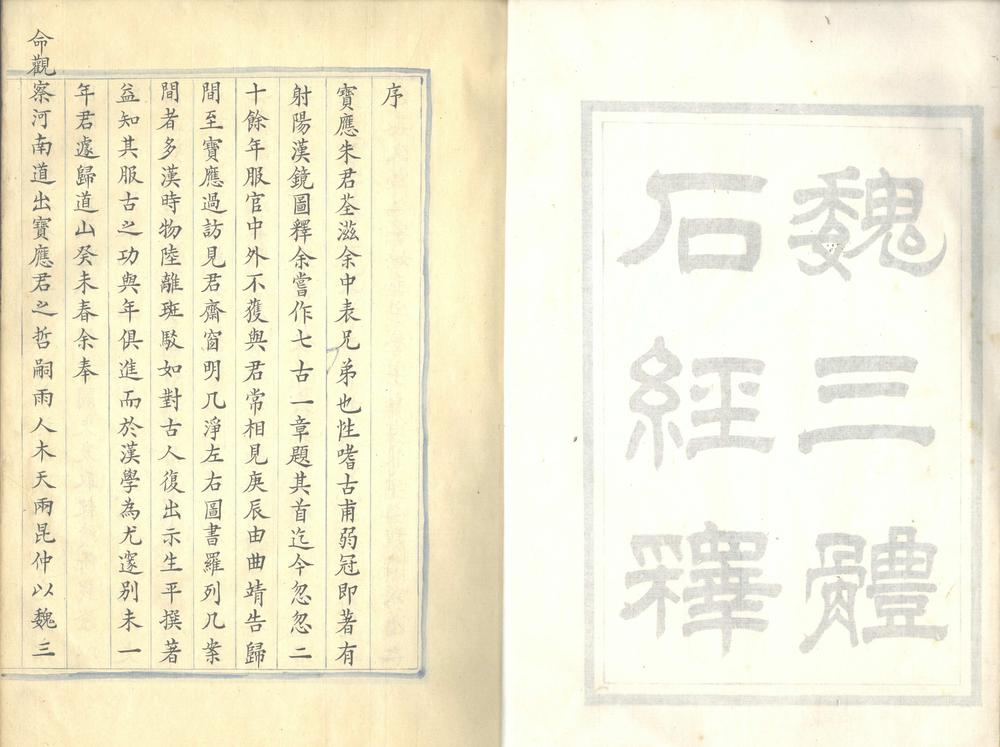 魏三體
石經釋
序
寶應朱君荃滋余中表兄弟也性嗜古甫弱冠即著有
射陽漢鏡圖釋余嘗作七古一章題其首迄今忽忽二
十餘年服官中外不獲與君常相見庚辰由曲靖告歸
間至寶應過訪見君齋窗明几淨左右圖書羅列几案
間者多漢時物陸離斑駁如對古人復出示生平撰著
益知其服古之功與年俱進而於漢學為尤邃別未一
年君遽歸道山癸未春余奉
命觀察河南道出寶應君之哲嗣雨人木天兩昆仲以魏三